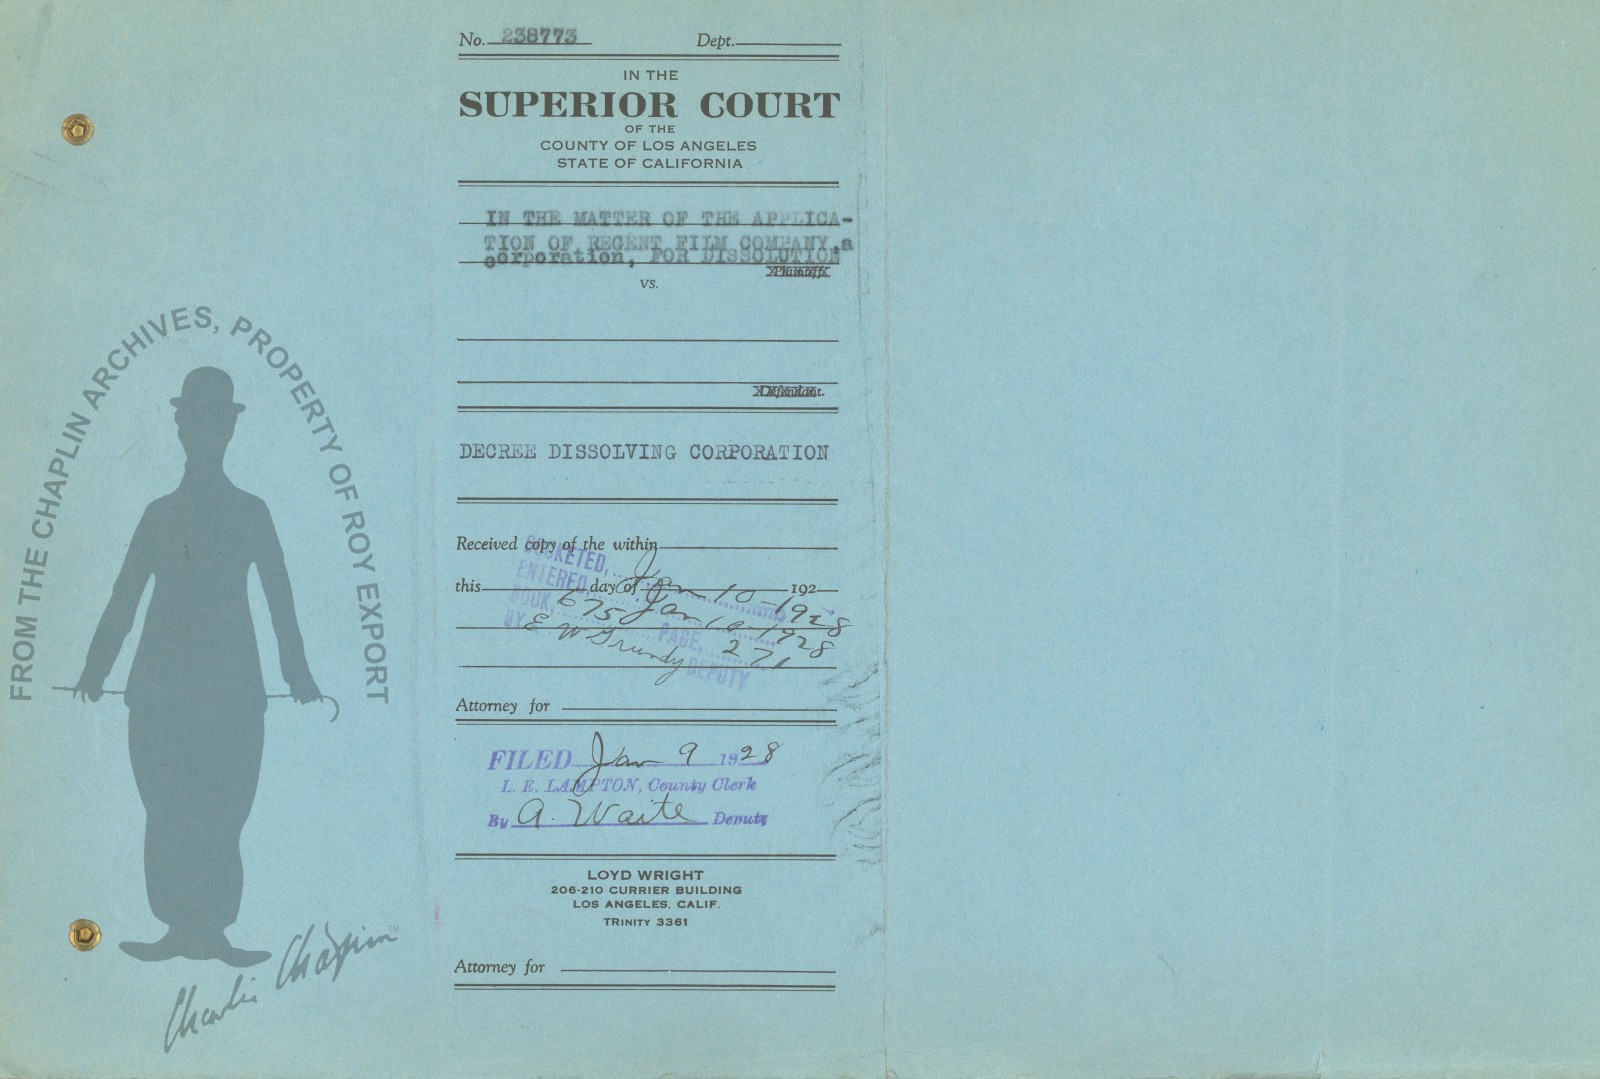 No. 238773 Dept.
IN THE
SUPERIOR COURT
OF THE
COUNTY OF LOS ANGELES
STATE OF CALIFORNIA
IN THE MATTER OF THE APPLICA-
TION OF REGENT FILM COMPANY, a
corporation, FOR DISSOLUTION
Plaintiff
vs.
Defendant.
DECREE DISSOLVING CORPORATION
Received copy of the within
this day of 192
DOCKETED, Jan 10-1928
ENTERED, Jan 10-1928
BOOK, 675 PAGE, 271
BY E W Grundy DEPUTY
Attorney for
FILED Jan 9 1928
L. E. LAMPTON, County Clerk
By A. Waite Deputy
LOYD WRIGHT
206-210 CURRIER BUILDING
LOS ANGELES, CALIF.
TRINITY 3361
Attorney for
FROM THE CHAPLIN ARCHIVES, PROPERTY OF ROY EXPORT
Charlie Chaplin TM